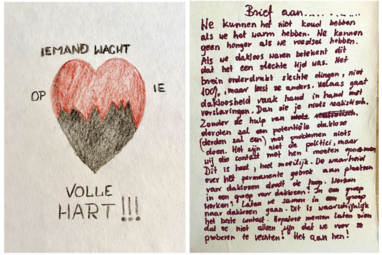 IEMAND WACHT
OP IE
VOLLE
HART!!!
Brief aan......
We kunnen het niet koud hebben
als we het warm hebben. We kunnen
geen honger als we voedsel hebben.
Als we dakloos waren betekent dit
dat het een slechte tijd was. Het
brein onderdrukt slechte dingen, niet
100%, maar leest ze anders. Helaas gaat
dakloosheid vaak hand in hand met
verslavingen. Dan zie je niets realistisch.
Zonder de hulp van
derden zal een potentiële dakloze
(derden zal een) met problemen niets
doen. Het zijn niet de politici, maar
wij die contact met hen moeten
Dit is heel, heel moeilijk. De waarheid
over het permanente gebrek aan plaatsen
voor daklozen doodt de hoop. Worden
in een groep voor daklozen? In een groep
werken! Laten we samen in een groep
naar daklozen gaan. Dit is waarschijnlijk
het beste contact. mensen laten zien
dat ze niet alleen zijn dat we voor ze
proberen te vechten! Het aan hen!